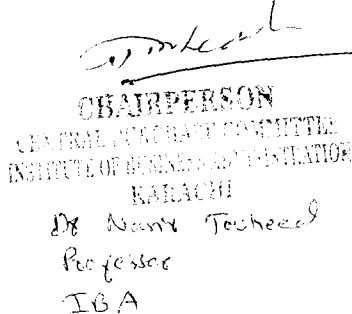 CHAIRPERSON
CENTRAL COMMITTEE
INSTITUTE OF BUSINESS ADMINISTRATION
KARACHI
Dr Nasir Touheed
Professor
IBA